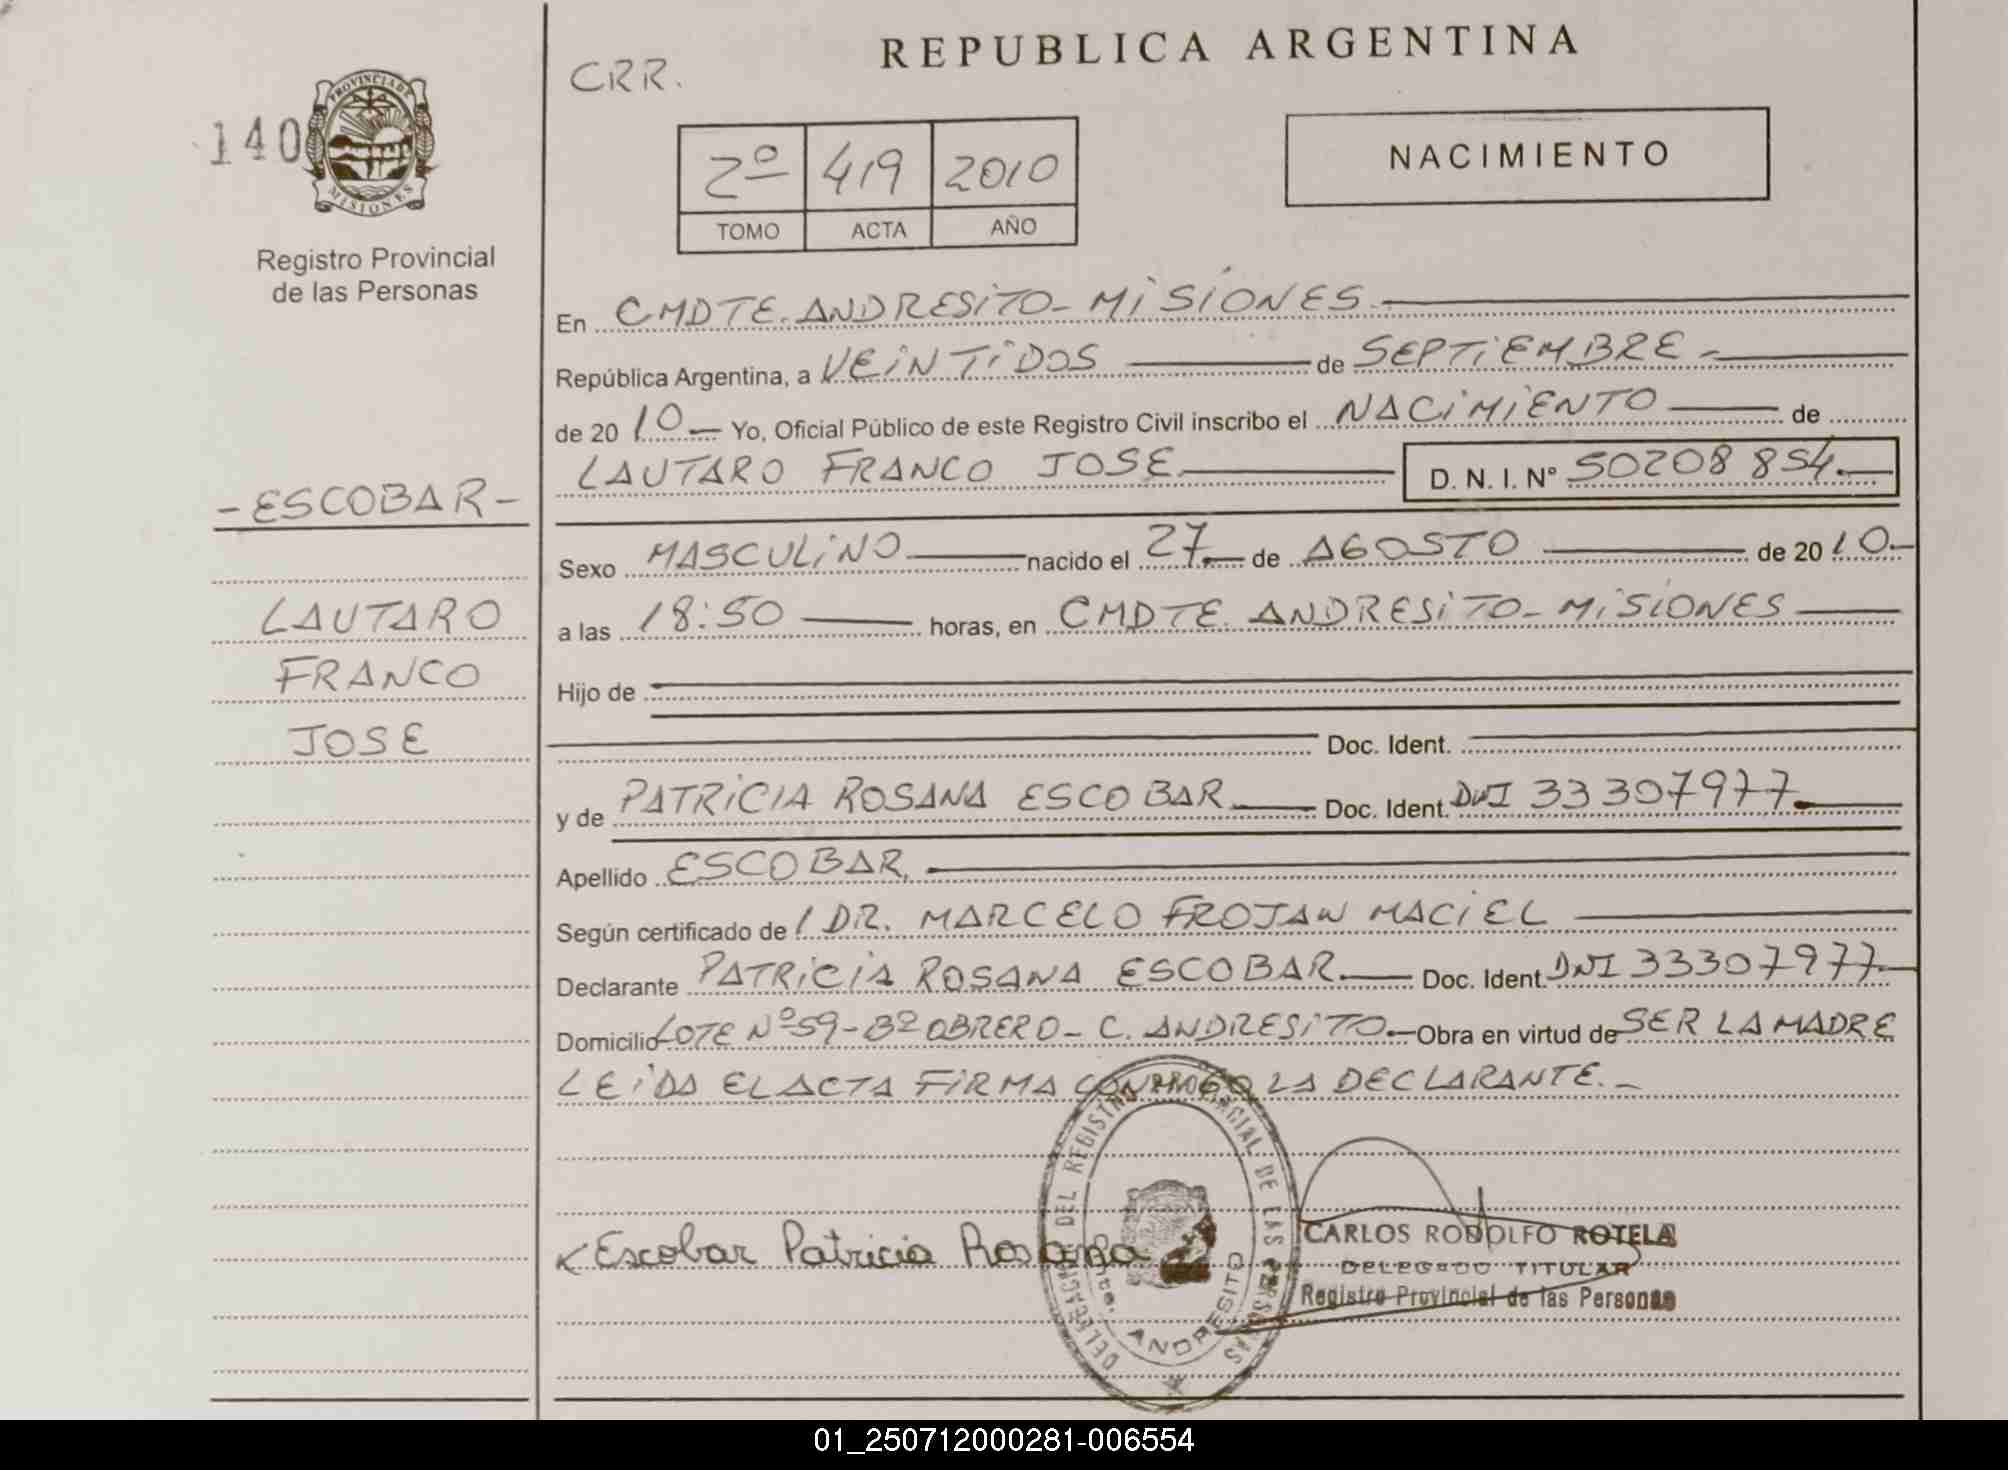 REPUBLICA ARGENTINA
CRR.
140
PROVINCIA DE MISIONES
Registro Provincial
de las Personas
NACIMIENTO
2º 419 2010
TOMO ACTA AÑO
En CMDTE. ANDRESITO - MISIONES
República Argentina, a VEINTIDOS de SEPTIEMBRE -
de 2010 Yo, Oficial Público de este Registro Civil inscribo el NACIMIENTO de
LAUTARO FRANCO JOSE D. N. I. Nº 50208854.
- ESCOBAR -
LAUTARO
FRANCO
JOSE
Sexo MASCULINO nacido el 27 de AGOSTO de 2010.
a las 18:50 horas, en CMDTE. ANDRESITO - MISIONES
Hijo de
Doc. Ident.
y de PATRICIA ROSANA ESCOBAR Doc. Ident. DNI 33307977.
Apellido ESCOBAR.
Según certificado de / DR. MARCELO FROJAN MACIEL
Declarante PATRICIA ROSANA ESCOBAR. Doc. Ident. DNI 33307977
Domicilio LOTE Nº 59 - Bº OBRERO - C. ANDRESITO. Obra en virtud de SER LA MADRE
LEIDA EL ACTA FIRMA CONMIGO LA DECLARANTE. -
DELEGACION DEL REGISTRO PROVINCIAL DE LAS PERSONAS
Cmte. ANDRESITO
Escobar Patricia Rosana
CARLOS RODOLFO ROTELA
DELEGADO TITULAR
Registro Provincial de las Personas
01_250712000281-006554